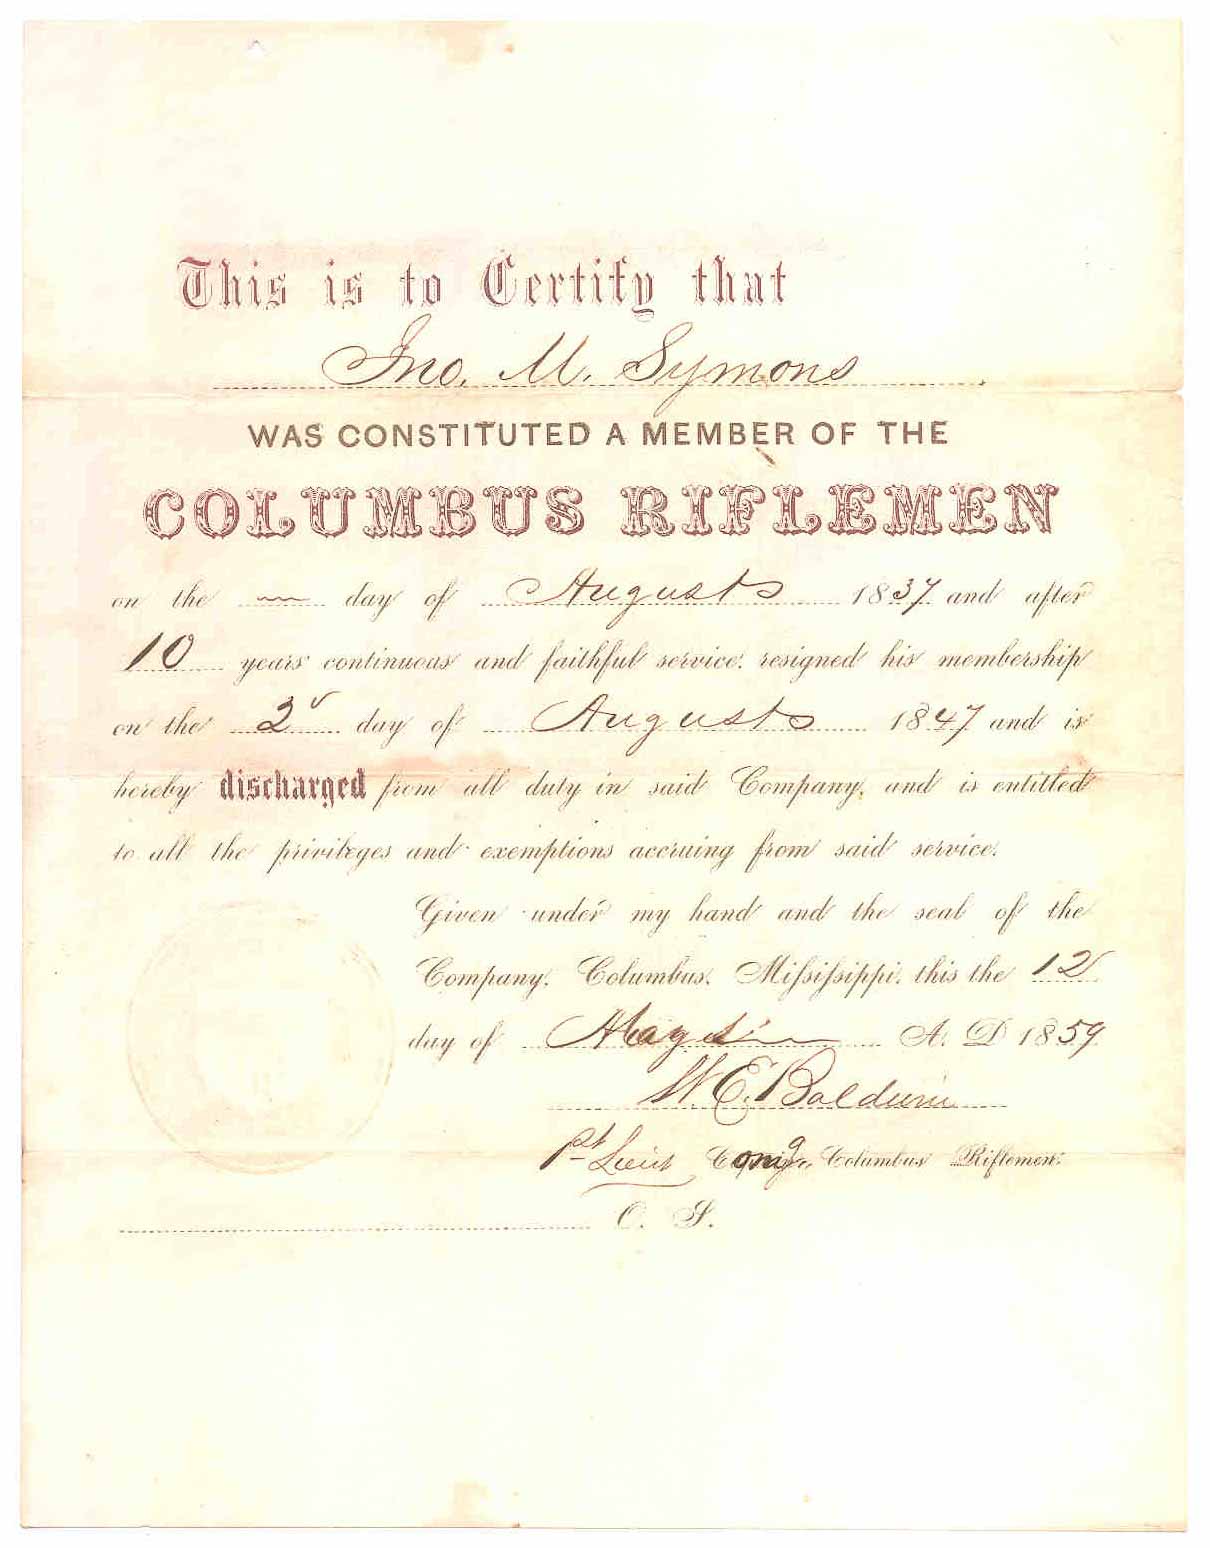 This is to Certify that
Jno. M. Symons
WAS CONSTITUTED A MEMBER OF THE
COLUMBUS RIFLEMEN
on the day of August 1837 and after
10 years continuous and faithful service, resigned his membership
on the 2 day of August 1847 and is
hereby discharged from all duty in said Company, and is entitled
to all the privileges and exemptions accruing from said service.
Given under my hand and the seal of the
Company, Columbus, Mississippi, this the 12
day of A. D. 1859
W. E. Baldwin
1st Lieut Columbus Riflemen.
O. S.